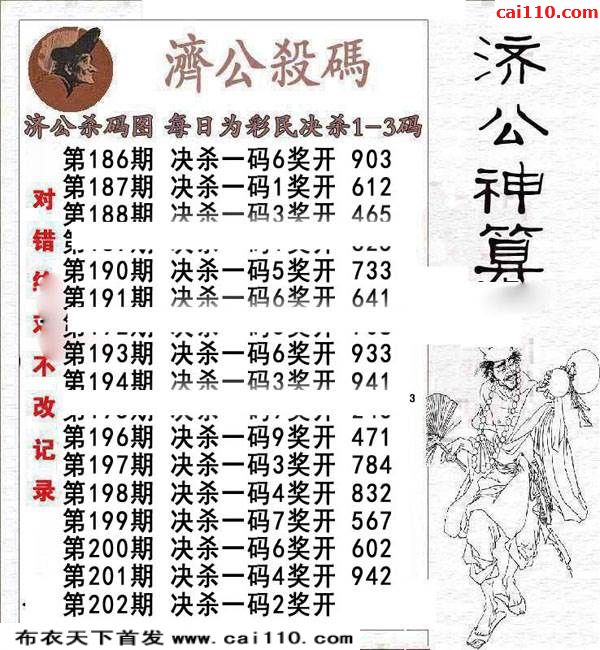 cai110.com
濟公殺碼
济公神算
济公杀码图 每日为彩民决杀1-3码
对错
不改记录
第186期 决杀一码6奖开 903
第187期 决杀一码1奖开 612
第188期 决杀一码3奖开 465
第190期 决杀一码5奖开 733
第191期 决杀一码6奖开 641
第193期 决杀一码6奖开 933
第194期 决杀一码3奖开 941
3
第196期 决杀一码9奖开 471
第197期 决杀一码3奖开 784
第198期 决杀一码4奖开 832
第199期 决杀一码7奖开 567
第200期 决杀一码6奖开 602
第201期 决杀一码4奖开 942
第202期 决杀一码2奖开
布衣天下首发 www.cai110.com